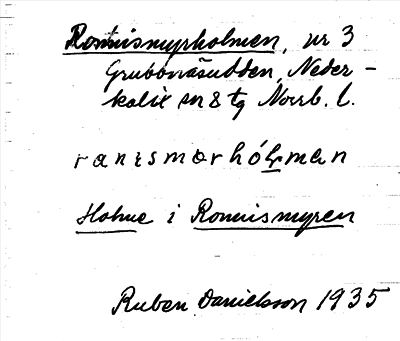 Rönnismyrholmen, nr 3
Grubbnäsudden, Neder-
kalix sn & tg Norrb. l.
ranismorhólman
Holme i Rönnismyren
Ruben Danielsson 1935